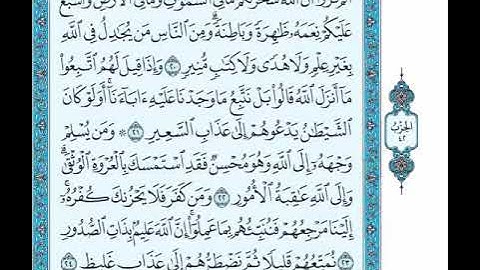 الم تروا ان الله سخر لكم ما في السموت وما في الارض واسبغ
عَلَيْكُمْ نِعَمَهُۥ ظَٰهِرَةً وَبَاطِنَةً ۗ وَمِنَ ٱلنَّاسِ مَن يُجَٰدِلُ فِى ٱللَّهِ
بِغَيْرِ عِلْمٍ وَلَا هُدًى وَلَا كِتَٰبٍ مُّنِيرٍ ٢٠ وَإِذَا قِيلَ لَهُمُ ٱتَّبِعُوا۟
مَآ أَنزَلَ ٱللَّهُ قَالُوا۟ بَلْ نَتَّبِعُ مَا وَجَدْنَا عَلَيْهِ ءَابَآءَنَآ ۚ أَوَلَوْ كَانَ
ٱلشَّيْطَٰنُ يَدْعُوهُمْ إِلَىٰ عَذَابِ ٱلسَّعِيرِ ٢١ ۞ وَمَن يُسْلِمْ
وَجْهَهُۥٓ إِلَى ٱللَّهِ وَهُوَ مُحْسِنٌ فَقَدِ ٱسْتَمْسَكَ بِٱلْعُرْوَةِ ٱلْوُثْقَىٰ ۗ
وَإِلَى ٱللَّهِ عَٰقِبَةُ ٱلْأُمُورِ ٢٢ وَمَن كَفَرَ فَلَا يَحْزُنكَ كُفْرُهُۥٓ ۚ
إِلَيْنَا مَرْجِعُهُمْ فَنُنَبِّئُهُم بِمَا عَمِلُوٓا۟ ۚ إِنَّ ٱللَّهَ عَلِيمٌۢ بِذَاتِ ٱلصُّدُورِ
٢٣ نُمَتِّعُهُمْ قَلِيلًا ثُمَّ نَضْطَرُّهُمْ إِلَىٰ عَذَابٍ غَلِيظٍ ٢٤
الحزب
٤٢